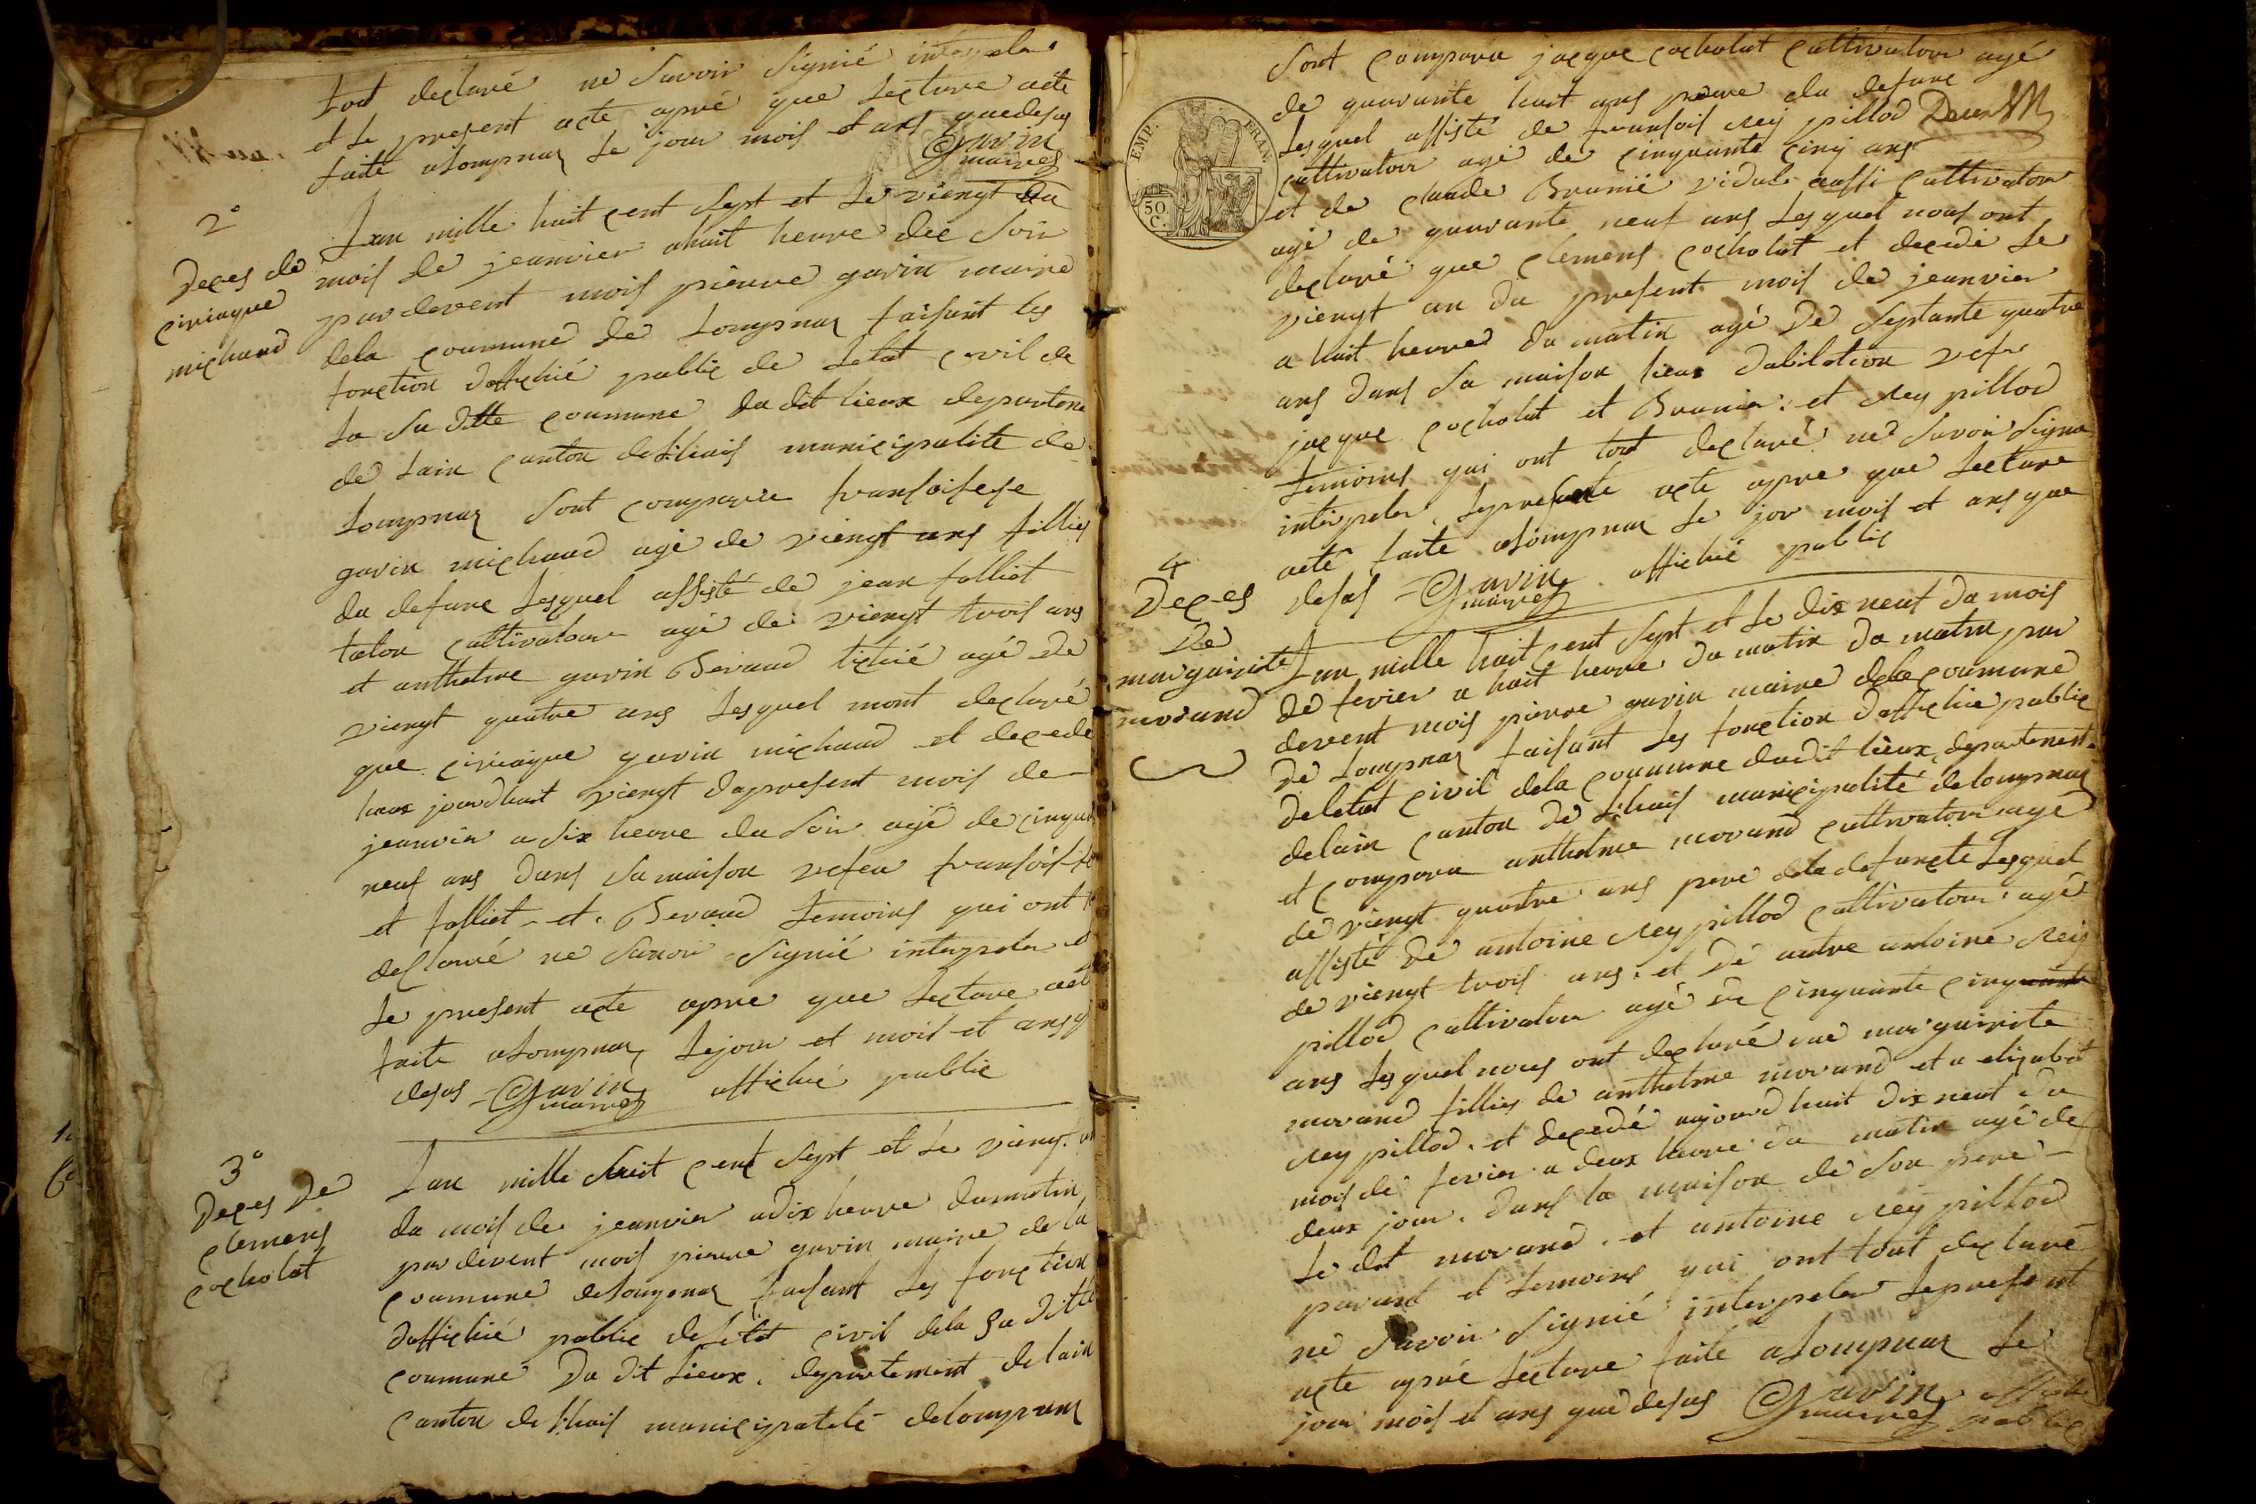 tout declaré ne savoir signié interpeler
et le present acte apré que lecture aété
faite alompnaz le jour mois et ans quedesus
Gavin
maires
2°
Deces de
ciriaque
michaud
Lan mille huit cent sept et le viengt du
mois de jeanvier ahuit heure dee soir
pardevent mois pierre gavin maire
dela coumune de lompnaz faisant les
fonction dofficié public de letat civil de
la su ditte coumune du dit lieux departeme
de lain canton de lhuis municipalité de
lompnaz sont comparu fransoise
gavin michaud agé de viengt ans fillies
du defunc lesquel assisté de jean folliet
talon cultivateur agé de viengt trois ans
et anthelme gavin Beraud ticié agé de
viengt quatre ans lesquel mont declaré
que ciriaque gavin michaud et decede
haux jourdhuit viengt dupresent mois de
jeanvier a six heure du soir agé de cinqua
neuf ans dans sa maison vefeu fransois
et folliet et Beraud temoins qui ont t
declaré ne savoir signié interpeler et
le present acte apre que lecture aét
faite alompnaz lejour et mois et ans q
desus Gavin officié public
maires
3°
Deces de
clemens
cocholat
Lan mille huit cent sept et le viengt un
du mois de jeanvier adix heure dumatin
par devent mois pierre gavin maire de la
coumune delompnaz faisant les fonction
dofficié public deletat civil dela su ditte
coumune du dit lieux departement de lain
canton de lhuis municipalité delompnaz
EMP. FRAN.
50
C.
sont comparu jacque cocholat cultivateur agé
de quarante huit ans du defunc
lesquel assisté de fransois rey pillod
cultivateur agé de cinquante cinq ans
et de claude Brunié vidal aussi cultivateur
agé de quarante neuf ans lesquel nous ont
declaré que clemens cocholat et decedé le
viengt un du present mois de jeanvier
a huit heure du matin agé de septante quatre
ans dans sa maison lieux dabitation vefu
jacque cocholat et Brunier et rey pillod
temoins qui ont tout declaré ne savoir signe
interpeler lepresente acte apre que lecture
aété faite alompnaz le jour mois et ans que
desus Gavin officié public
maires
4
Deces
de
marguirite
morand
Lan mille huit cent sept et le dix neuf du mois
de fevrier a huit heure du matin du matin par
devent mois pierre gavin maire dela coumune
de lompnaz faisant les fonction dofficié public
deletat civil dela coumune dudit lieux departement
delain canton de lhuis municipalité delompnaz
et comparu anthelme morand cultivateur agé
de viengt quatre ans pere dela defuncte lesquel
assisté de antoine rey pillod cultivateur agé
de viengt trois ans et de autre antoine rey
pillod cultivateur agé de cinquante cinq
ans lesquel nous ont declaré que marguirite
morand fillies de anthelme morand et a elizabet
rey pillod et decedé aujourdhuit dix neuf du
mois de fevrier a deux heure du matin agé de
deux jour dans la maison de son pere
le dit morand et antoine rey pillod
parant et temoins qui ont tout declaré
ne savoir signié interpeler lepresent
acte apré lecture faite alompnaz le
jour mois et ans que desus Gavin officié
maires public